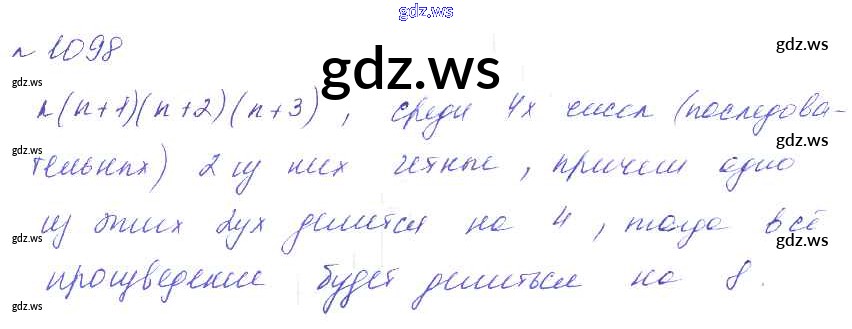 gdz.ws
№ 1098
gdz.ws
gdz.ws
gdz.ws
n(n+1)(n+2)(n+3), среди 4х чисел (последова-
gdz.ws
gdz.ws
тельных) 2 из них четные, причем одно
из этих 2ух делится на 4, тогда всё
gdz.ws
gdz.ws
произведение будет делиться на 8.
gdz.ws
gdz.ws